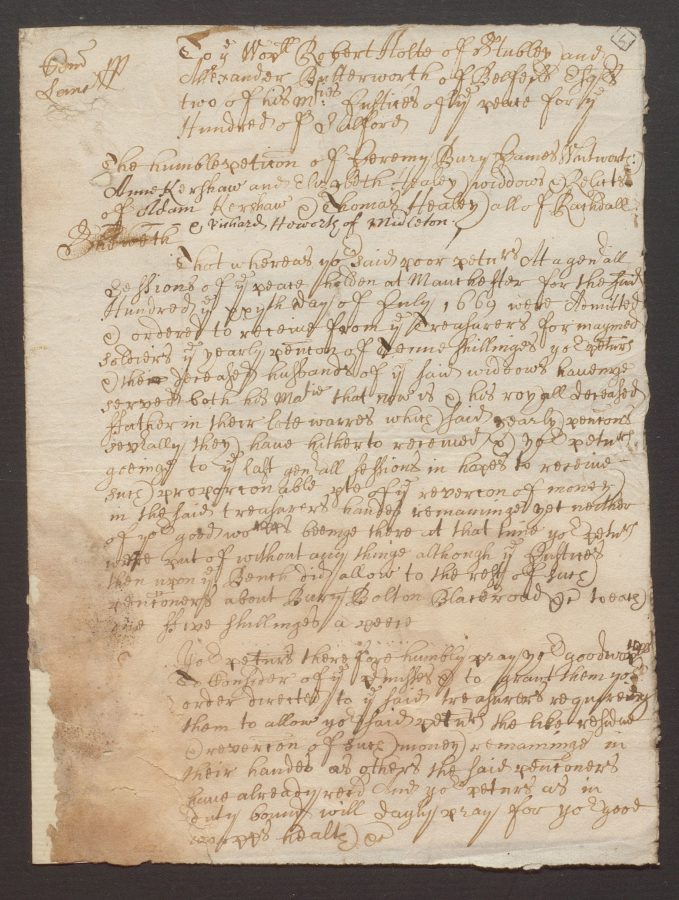 To ye Worll Robert Holte of Stubley and
Allexander Butterworth of Belfeild Esqrs
two of his Mties Justices of ye peace for ye
Hundred of Salford
The humble peticon of Jeremy Bury James
Anne Kershaw and Elizabeth Healey widdows & Relicts
of Adam Kershaw & Thomas Healey all of Rachdall
& Richard Howorth of Midleton
Sheweth
That whereas yor said poor petrs Att a genall
Sessions of ye peace holden at Manchester for the said
Hundred ye day of July 1669 were Admitted
& ordered to receive from ye Treasurers for maymed
soldiers ye yearly pencon of Tenne shillinges yor petrs
& their deceased husbands of ye said widdows haveinge
served both his Matie that now is & his royall deceased
ffather in their late warres which said yearly pencons
sevrally they have hitherto received & yor petrs
goeinge to ye last genall sessions in hopes to receive
such proporconable pte of ye revercon of money
in the said treasurers handes remaininge yet neither
of yor good worpps beeinge there at that time yor petrs
were put of without any thinge although ye Justices
then upon ye Bench did allow to the rest of such
pencioners about Bury Bolton Blackrood &c to each
one ffive shillinges a peece
Yor petrs therefore humbly pray yor good worpps
to Consider of ye pmisses & to grant them yor
order directed to ye said treasurers requireing
them to allow yor said petrs the like residue
& revercon of such money remaininge in
their handes as others the said pencioners
have already recd And yor petrs as in
duty bound will dayly pray for yor good
worpps health &c